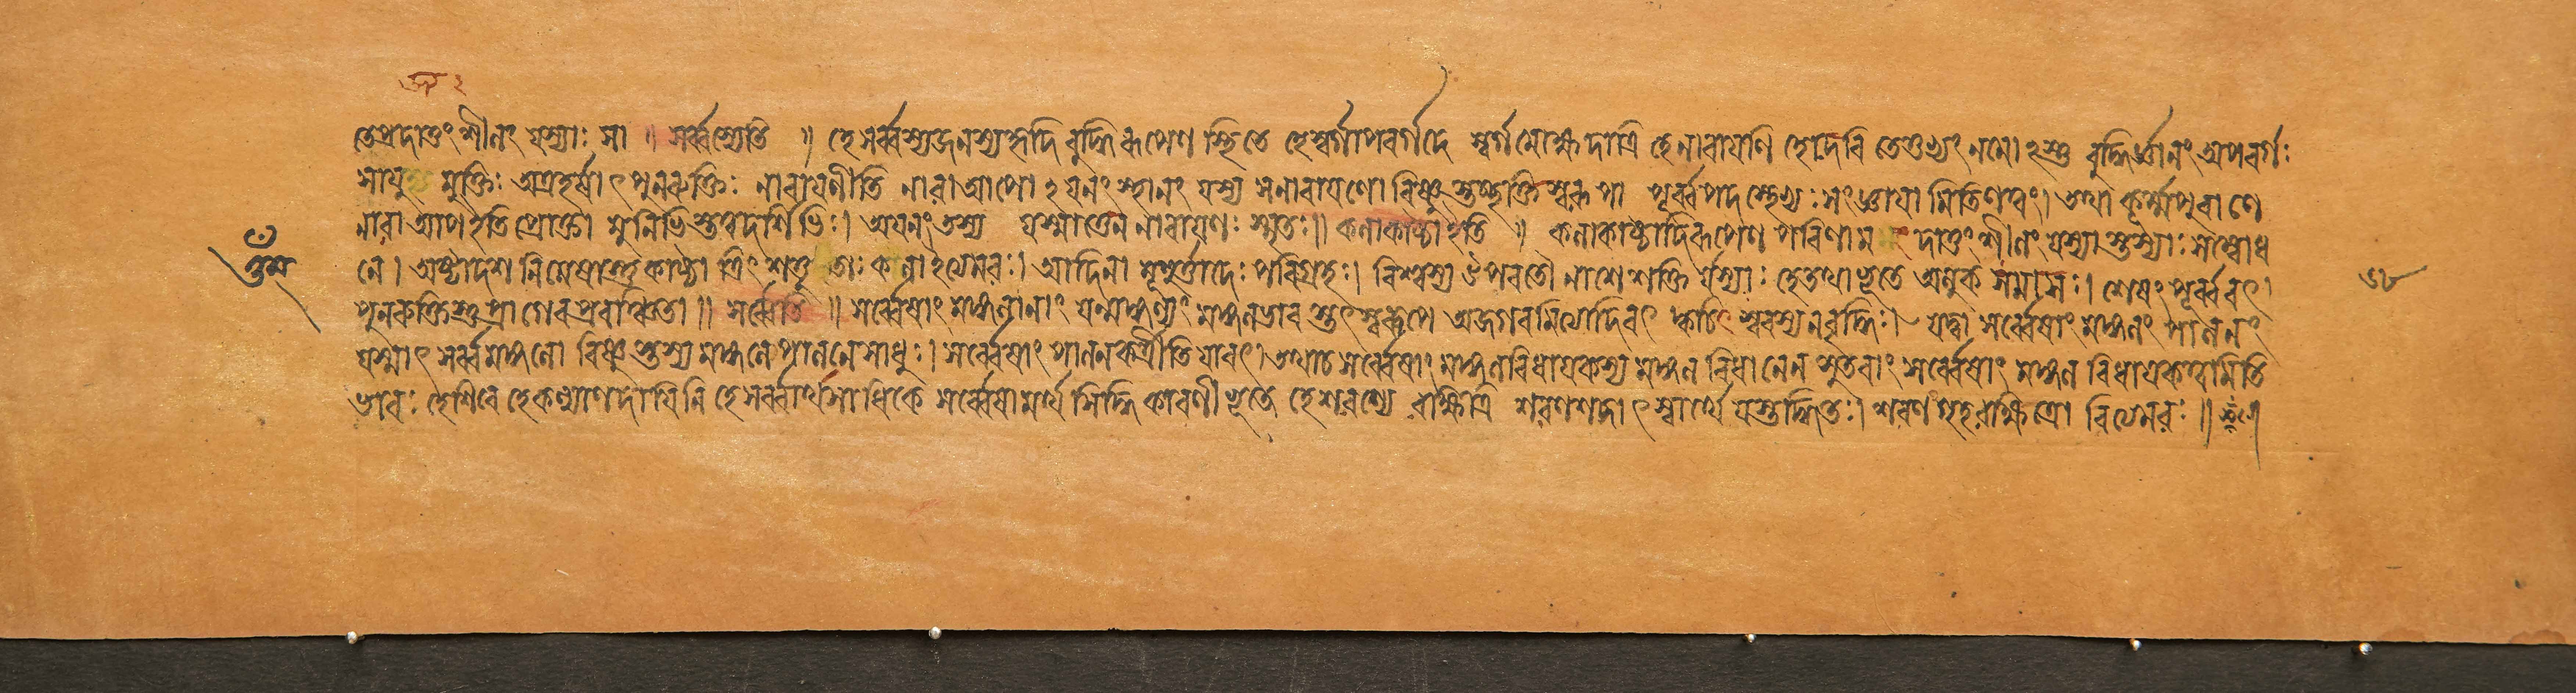 তেপ্রদাতুং শীলং যস্যাঃ সা ॥ সর্ব্বস্যেতি ॥ হে সর্ব্বস্যজনস্যহৃদি বুদ্ধিরূপেণ স্থিতে হেস্বর্গাপবর্গদে স্বর্গমোক্ষদাত্রি হেনারায়ণি হেদেবি তেতুভ্যং নমোঽস্তু বুদ্ধির্জ্ঞানং অপবর্গঃ
সাযু মুক্তিঃ অপ্রহর্ষাৎ পুনরুক্তিঃ নারায়ণীতি নারাআপোঽয়নং স্থানং যস্য সনারায়ণো বিষ্ণুস্তচ্ছক্তিস্বরূপা পূর্ব্বপদস্থেভ্যঃ সংজ্ঞায়ামিতিণত্বং। তথা কূর্ম্মপুরাণে
নারাআপইতিপ্রোক্তা মুনিভিস্তত্বদর্শিভিঃ। অয়নংতস্য যস্মাত্তেন নারায়ণঃ স্মৃতঃ॥ কলাকাষ্ঠাইতি ॥ কলাকাষ্ঠাদিরূপেণ পরিণাম দাতুং শীলং যস্যাস্তস্যাঃ সম্বোধ
নে। অষ্টাদশ নিমেষাস্তু কাষ্ঠা ত্রিংশত্তু তাঃ কলাইত্যমরঃ। আদিনা মুহূর্ত্তাদেঃ পরিগ্রহঃ। বিশ্বস্য উপরতৌ নাশে শক্তি র্যস্যাঃ হেতথাভূতে অলুক্ সমাসঃ। শেষং পূর্ব্ববৎ।
পুনরুক্তিস্তু প্রাগেবপ্রপঞ্চিতা॥ সর্ব্বেতি ॥ সর্ব্বেষাং মঙ্গলানাং যন্মাঙ্গল্যং মঙ্গলভাব স্তৎস্বরূপে অজগবমিত্যাদিবৎ ক্বচিৎ স্বরস্যনবৃদ্ধিঃ। যদ্বা সর্ব্বেষাং মঙ্গলং পালনং
যস্মাৎ সর্ব্বমঙ্গলো বিষ্ণুস্তস্যমঙ্গলেপালনেসাধুঃ। সর্ব্বেষাং পালনকর্ত্রীতিযাবৎ। তথাচ সর্ব্বেষাং মঙ্গলবিধায়কস্য মঙ্গলবিধানেন সুতরাং সর্ব্বেষাং মঙ্গলবিধায়কত্বমিতি
ভাবঃ হেশিবে হেকল্যাণদায়িনি হেসর্ব্বার্থসাধিকে সর্ব্বেষামর্থসিদ্ধিকারণীভূতে হেশরণ্যে রক্ষিত্রি শরণশব্দাৎ স্বার্থে যস্তদ্ধিতঃ। শরণং গৃহরক্ষিত্রো রিত্যমরঃ॥